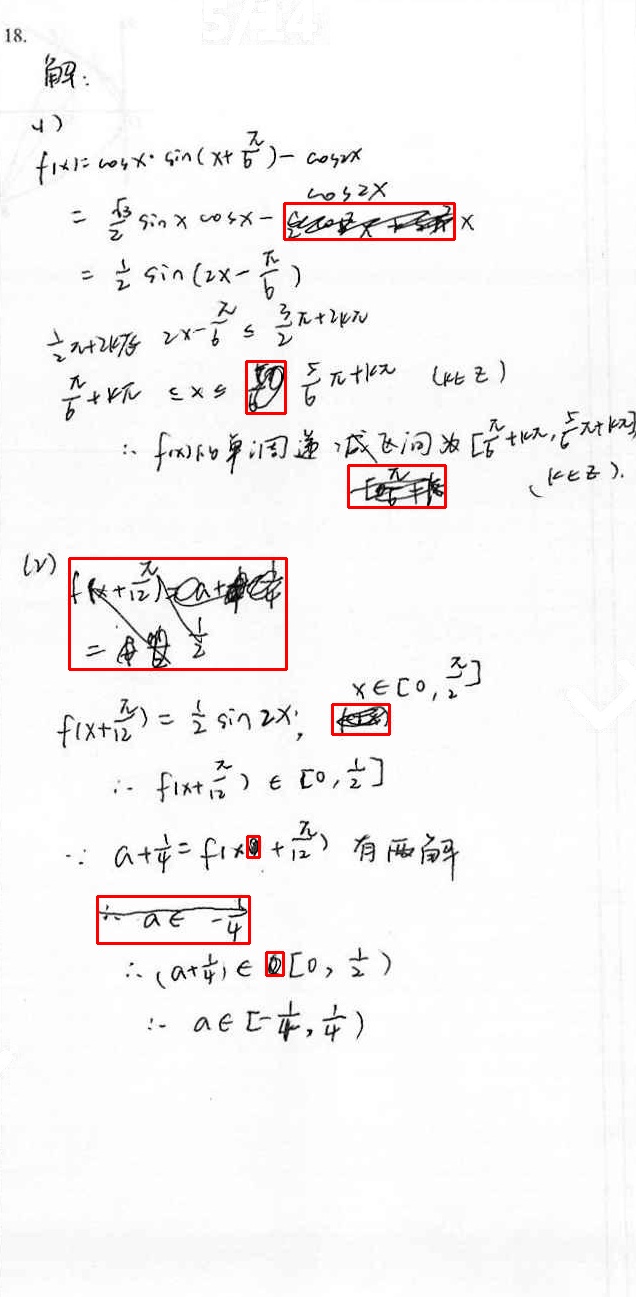 18.
解:
(1)
f(x)=cosx·sin(x+π/6)-cos2x
cos2x
= √3/2 sinx cosx- x
= 1/2 sin(2x-π/6)
1/2π+2kπ≤ 2x-π/6 ≤ 3/2π+2kπ
π/6+kπ ≤x≤ 5/6π+kπ (k∈Z)
∴ f(x)的单调递减区间为[π/6+kπ, 5/6π+kπ]
(k∈Z).
(2)
f(x+π/12)
= 1/2
x∈[0,π/2]
f(x+π/12)=1/2 sin2x;
∴ f(x+π/12) ∈ [0,1/2]
∵ a+1/4=f(x+π/12) 有两解
∴ a∈ -1/4
∴(a+1/4)∈[0,1/2)
∴ a∈[-1/4,1/4)